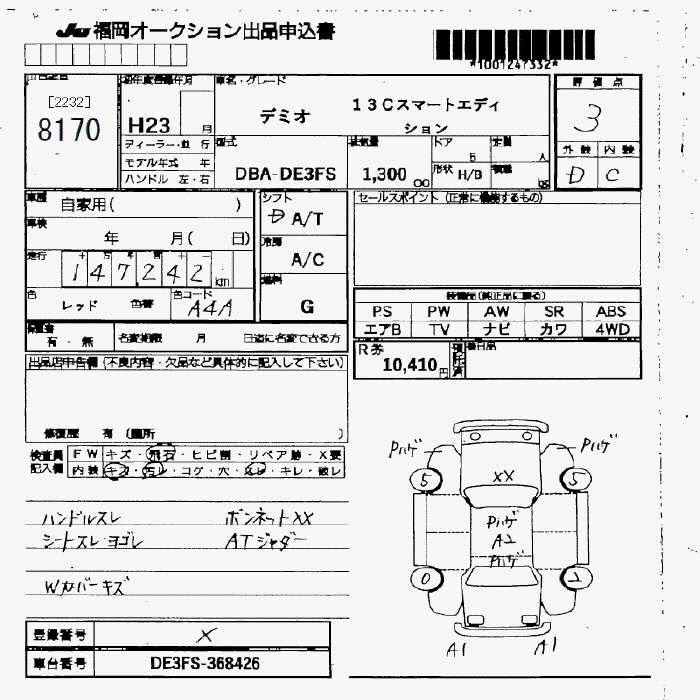 JU 福岡オークション出品申込書
*1001247332*
[2232]
8170
初年度登録年月
H23 月
ディーラー・並 行
モデル年式 年
ハンドル 左・右
車名・グレード
デミオ 13Cスマートエディション
型式
DBA-DE3FS
排気量
1,300 cc
ドア
5
定員
人
形状
H/B
積載
評価点
3
外装 内装
D C
車歴
自家用( )
車検
年 月( 日)
走行
147,242 km
色
レッド 色番
色コード
A4A
シフト
D A/T
冷房
A/C
燃料
G
セールスポイント (正常に機能するもの)
装備品(純正品に限る)
PS PW AW SR ABS
エアB TV ナビ カワ 4WD
有・無
名変期限 月 日迄に名変できる方
R券
10,410 円
預託済
後日品
出品店申告欄(不良内容・欠品など具体的に記入して下さい)
修復歴 有 (箇所 )
検査員記入欄
FW キズ・飛石・ヒビ割・リペア跡・X要
内装 キズ・汚レ・コゲ・穴・スレ・キレ・破レ
ハンドルスレ ボンネットXX
シートスレ ヨゴレ ATジャダー
Wカバーキズ
Pハゲ
Pハゲ
5
5
XX
Pハゲ
A2
Pハゲ
0
2
A1
A1
登録番号 X
車台番号 DE3FS-368426